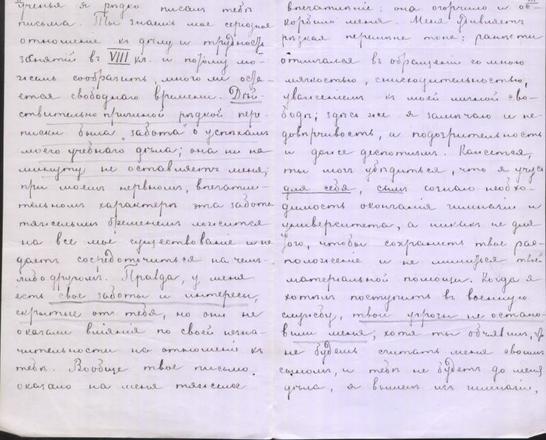 ученья я рѣдко писалъ тебѣ
письма. Ты знаешь мое серьозное
отношеніе къ дѣлу и трудность
занятій въ VIII кл. и потому мо-
жешь сообразить, много ли оста-
ется свободнаго времени. Дѣй-
ствительно причиной рѣдкой пере-
писки была забота о успѣхахъ
моего учебнаго дѣла; она ни на
минуту не оставляетъ меня,
при моемъ нервномъ, впечатли-
тельномъ характерѣ эта забота
тяжелымъ бременемъ ложится
на все мое существованіе и не
даетъ сосредоточиться на чемъ-
либо другомъ. Правда, у меня
есть свои заботы и интересы,
скрытые отъ тебя, но они не
оказали вліянія по своей незна-
чительности на отношенія къ
тебѣ. Вообще твое письмо
оказало на меня тяжелое
впечатлѣніе: она огорчило и ос-
корбило меня. Меня удивляетъ
рѣзкая перемѣна тона: раньше ты
отличался въ обращеніи со мною
мягкостью, снисходительностью,
уваженіемъ къ моей личной сво-
бодѣ; здѣсь же я замѣчаю и не-
довѣрчивость, и подозрительность
и даже деспотизмъ. Кажется,
ты могъ убѣдиться, что я учусь
для себя, самъ сознаю необхо-
димость окончанія гимназіи и
университета, а никакъ не для
того, чтобы сохранить твое рас-
положеніе и не лишиться твоей
матеріальной помощи. Когда я
хотѣлъ поступить въ военную
службу, твои угрозы не остано-
вили меня, хотя ты объявилъ, что
не будешь считать меня своимъ
сыномъ, и тебѣ не будетъ до меня
дѣла, я вышелъ изъ гимназіи,